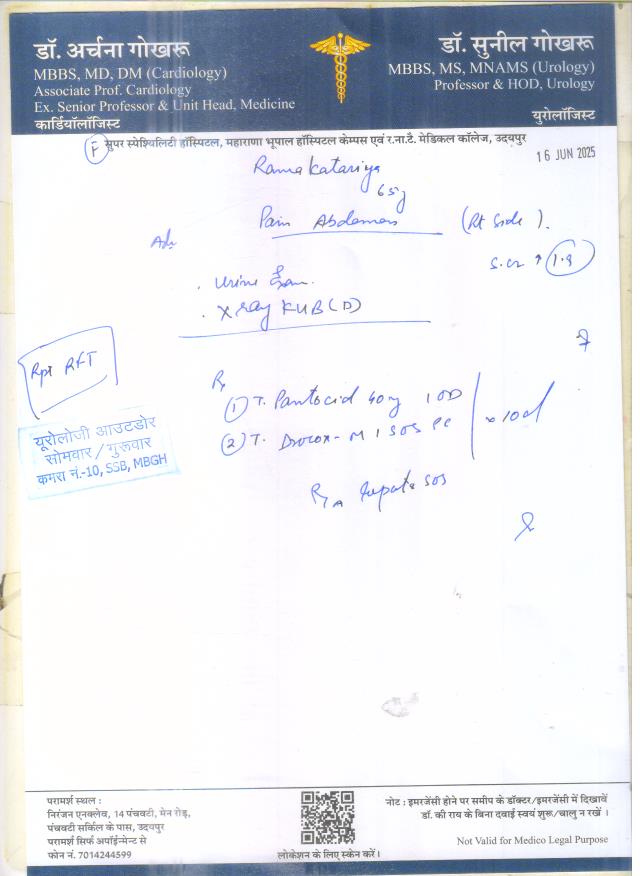 डॉ. अर्चना गोखरू
MBBS, MD, DM (Cardiology)
Associate Prof. Cardiology
Ex. Senior Professor & Unit Head, Medicine
कार्डियॉलॉजिस्ट
डॉ. सुनील गोखरू
MBBS, MS, MNAMS (Urology)
Professor & HOD, Urology
युरोलॉजिस्ट
F सुपर स्पेश्यिलिटी हॉस्पिटल, महाराणा भूपाल हॉस्पिटल केम्पस एवं र.ना.टै. मेडिकल कॉलेज, उदयपुर
16 JUN 2025
Rama Katariya
65y
Pain Abdomen (Rt Side).
Adv
S.cr ↑ 1.9
. Urine Exam.
. X ray KUB (D)
Rpt RFT
यूरोलोजी आउटडोर
सोमवार / गुरूवार
कमरा नं.-10, SSB, MBGH
Rx
1 T. Pantocid 40mg 1 OD
2 T. Drocox-M 1 SOS PC
x 10d
SOS
परामर्श स्थल :
निरंजन एनक्लेव, 14 पंचवटी, मेन रोड़,
पंचवटी सर्किल के पास, उदयपुर
परामर्श सिर्फ अपॉईन्मेन्ट से
फोन नं. 7014244599
लोकेशन के लिए स्केन करें।
नोट : इमरजेंसी होने पर समीप के डॉक्टर/इमरजेंसी में दिखावें
डॉ. की राय के बिना दवाई स्वयं शुरू/चालु न रखें ।
Not Valid for Medico Legal Purpose